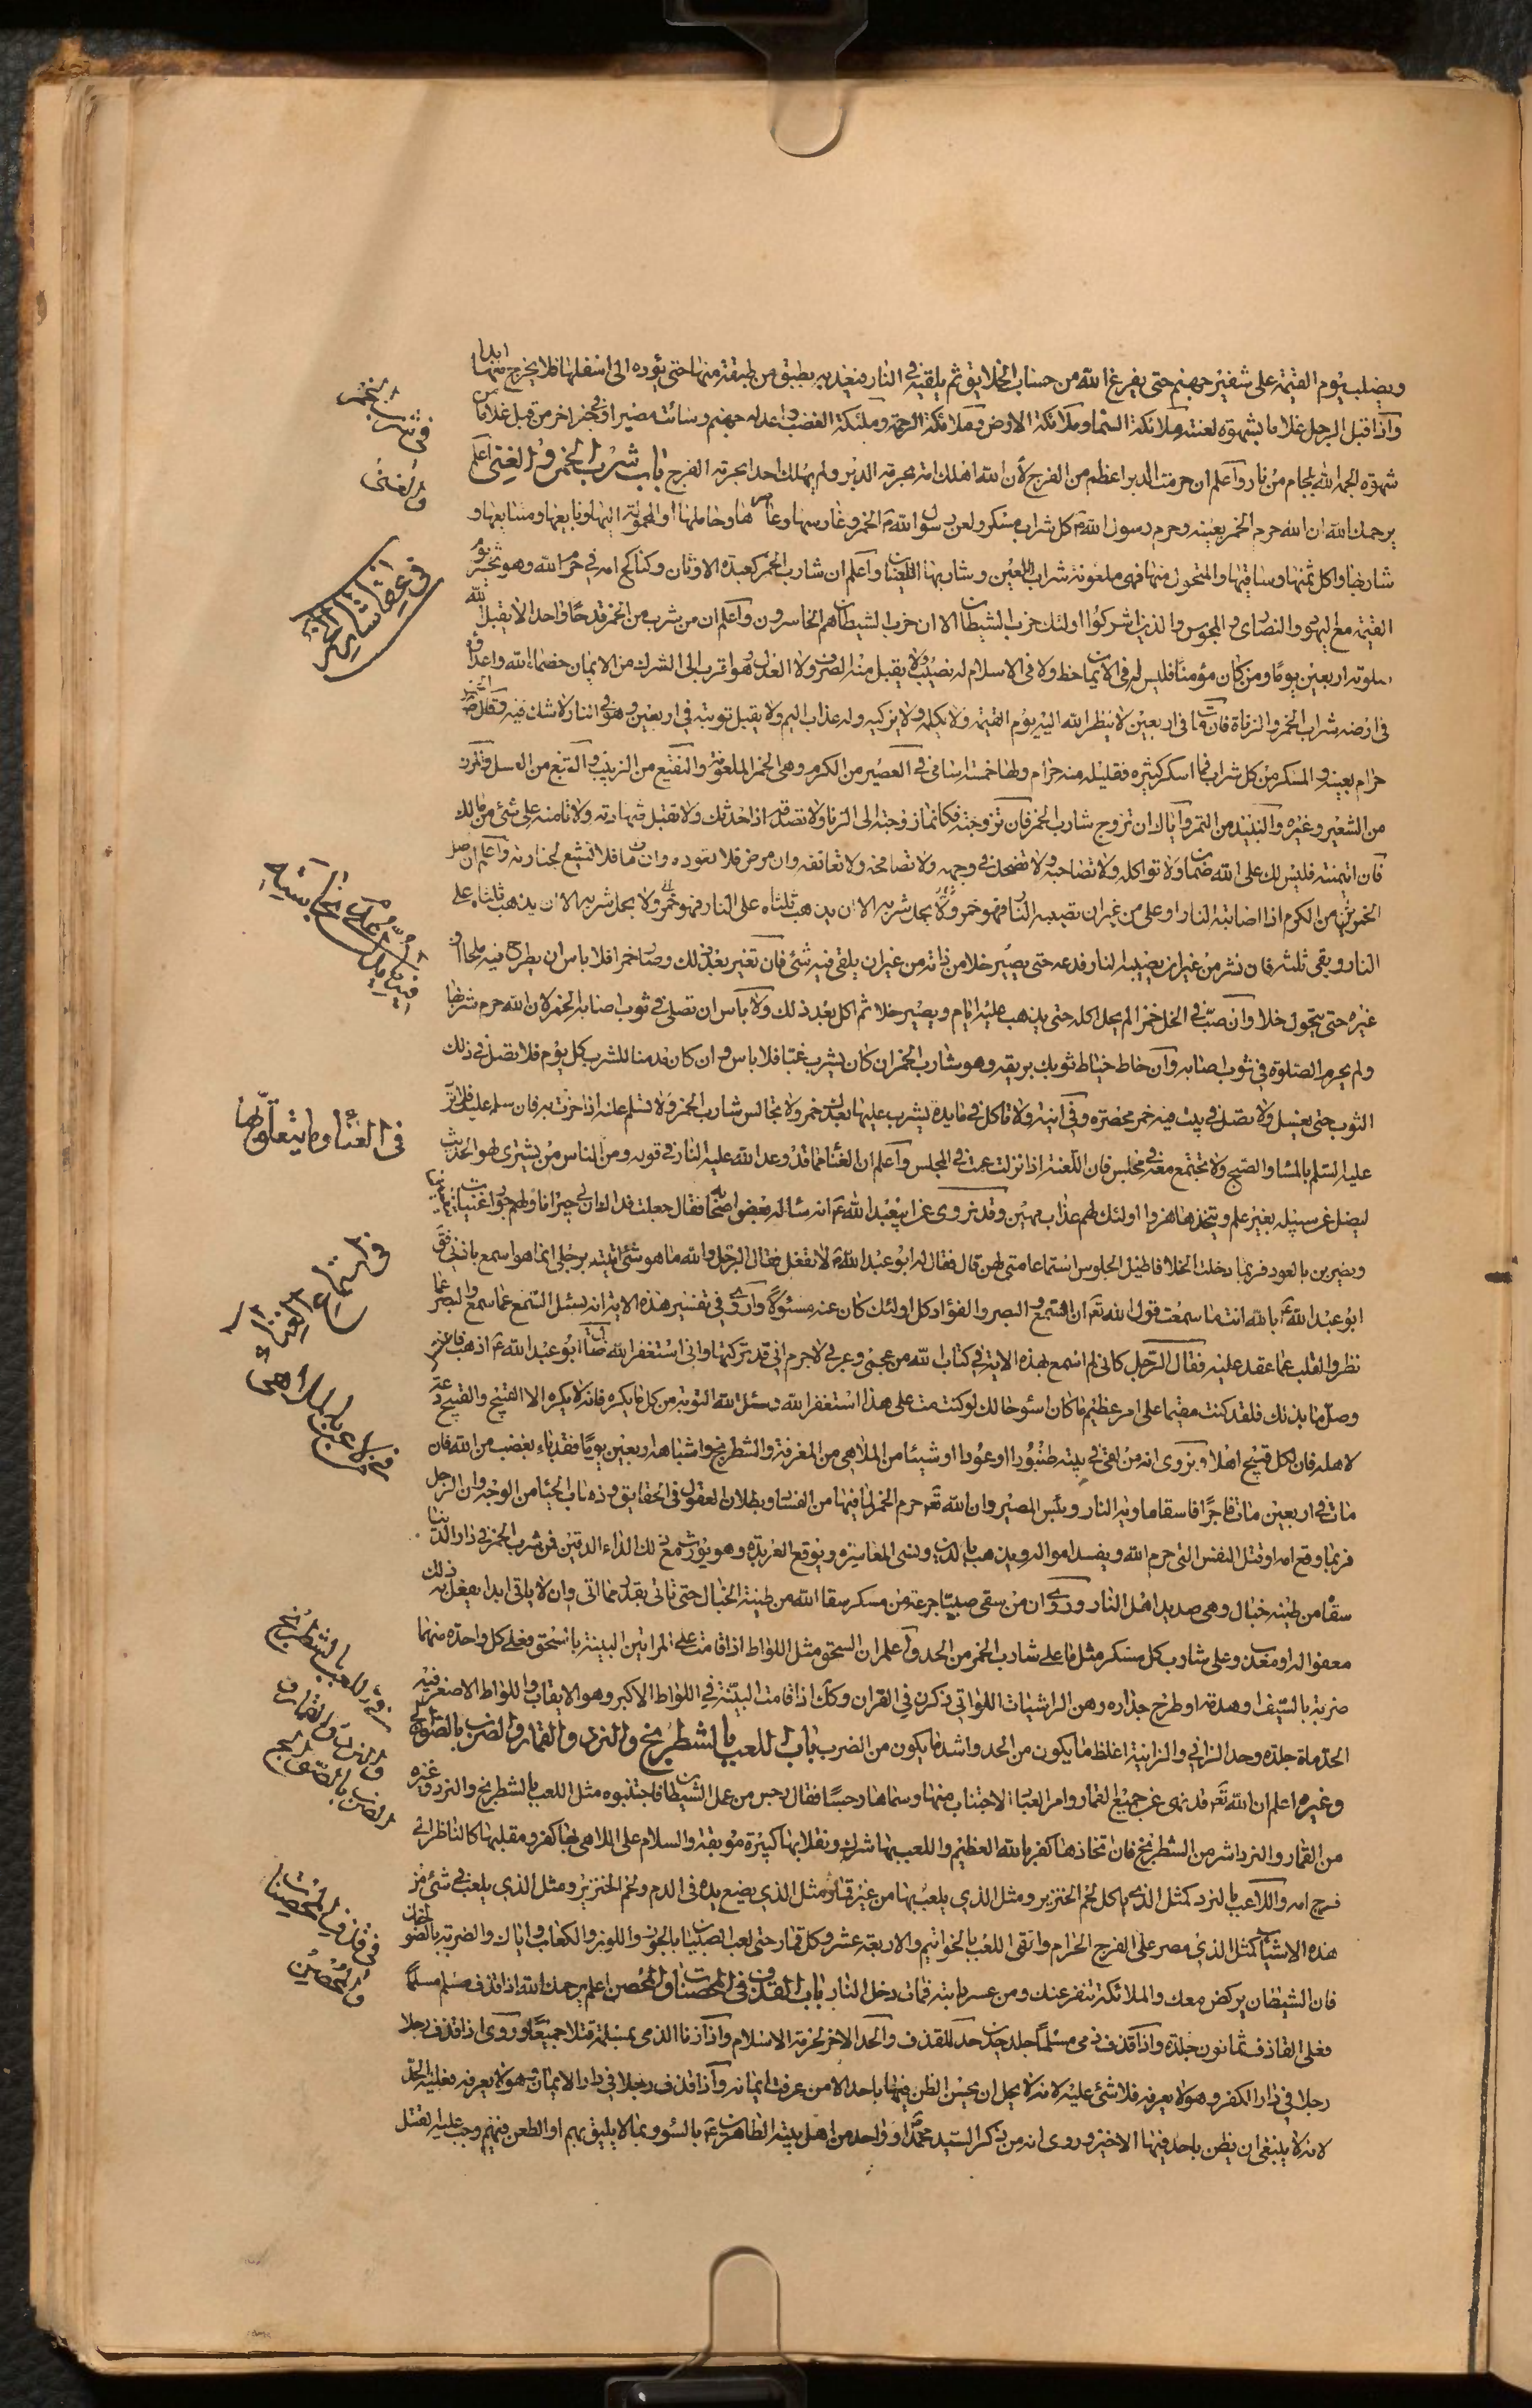 ويصلب يوم القيمة على شفير جهنم حتى يفرغ الله من حساب الخلايق ثم يلقيه في النار فيعذبه بطبق من طبقة منها حتى يؤده الى اسفلها فلا يخرج منها ابدا
واذا قبل الرجل غلاما بشهوة لعنته ملائكة السماء وملائكة الارض وملائكة الرحمة وملئكة الغضب واعد له جهنم وسائت مصيرا وفي خبر اخر من قبل غلاما من
شهوة الجمه الله بلجام من نار واعلم ان حرمة الدبر اعظم من الفرج لأن الله اهلك امة بحرمة الدبر ولم يهلك احدا بحرمة الفرج باب شرب الخمر والغنى اعلم
يرحمك الله ان الله حرم الخمر بعينه وحرم رسول الله ص كل شراب مسكر ولعن رسول الله ص الخمر وغارسها وعاصرها وحاملها والمحمولة اليها وبايعها ومتبايعها و
شاربها واكل ثمنها وساقيها والمتحول منها فهى ملعونة شراب اللعين وشاربها اللعنا واعلم ان شارب الخمر كعبدة الاوثان وكناكح امه في حرم الله وهو يحشر يوم
القيمة مع اليهود والنصارى والمجوس والذين اشركوا اولئك حزب الشيطان الا ان حزب الشيطان هم الخاسرون واعلم ان من شرب من الخمر قدحا واحدا لا يقبل الله
صلوته اربعين يوما ومن كان مؤمنا فليس له في الايمان حظ ولا في الاسلام له نصيب ولا يقبل منه الصرف ولا العدل وهو اقرب الى الشرك من الايمان خصماء الله واعدائه
في ارضه شراب الخمر والزناة فان مات في اربعين لا ينظر الله اليه يوم القيمة ولا يكلمه ولا يزكيه وله عذاب اليم ولا يقبل توبته في اربعين وهو في النار لا شك فيه
حرام بعينه والمسكر من كل شراب فما اسكر كثيره فقليله منه حرام ولها خمسة اسامي فى العصير من الكرم وهى الخمر الملعونة والنقيع من الزبيب والبتع من العسل والمزر
من الشعير وغيره والنبيذ من التمر واياك ان تزوج شارب الخمر فان تزوجته فكانما زوجته الى الزنا ولا تصدقه اذا حدثك ولا تقبل شهادته ولا تامنه على شئ من مالك
فان ائتمنته فليس لك على الله ضمان ولا تواكله ولا تصاحبه ولا تضحك في وجهه ولا تصافحه ولا تعانقه وان مرض فلا تعوده وان مات فلا تشيع لجنازته واعلم ان اصل
الخمر من الكرم اذا اصابته النار او على من غير ان تصيبه النار فهو خمر ولا يحل شربه الا ان يذهب ثلثاه على
النار ويبقى ثلثه فان نش من غير ان يصيبه النار فدعه حتى يصير خلا من ذاته من غير ان يلقى فيه شئ فان تغير بعد ذلك وصار خمرا فلا باس ان يطرح فيه ملحا او
غيره حتى يتحول خلا وان صب في الخل خمر لم يحل اكله حتى يذهب عليه ايام ويصير خلا ثم اكل بعد ذلك ولا بأس ان تصلى في ثوب اصابه الخمر لان الله حرم شربها
ولم يحرم الصلوة في ثوب اصابه وان خاط خياط ثوبك بريقه وهو شارب الخمر ان كان يشرب غبا فلا باس وان كان مدمنا للشرب كل يوم فلا تصل في ذلك
الثوب حتى يغسل ولا تصل في بيت فيه خمر محضرة وفي انية ولا تاكل في مايدة يشرب عليها بعدك خمر ولا تجالس شارب الخمر ولا تسلم عليه اذا جزت به فان سلم عليك فلا ترد
عليه السلم بالمساء والصبح ولا تجتمع معه في مجلس فان اللعنة اذا نزلت عمت في المجلس واعلم ان الغناء مما قد وعد الله عليه النار في قوله ومن الناس من يشترى لهو الحديث
ليضل عن سبيله بغير علم ويتخذها هزوا اولئك لهم عذاب مهين وقد نروى عن ابيعبد الله ع انه سئاله بعض اصحابه فقال جعلت فداك ان لي جيرانا ولهم جوار مغنيات يتغنين
ويضربن بالعود فربما دخلت الخلا فاطيل الجلوس استماعا منى لهن قال فقال له ابو عبد الله ع لا تفعل فقال الرجل والله ما هو شئ اتيته برجلى انما هو اسمع باذنى فقال
ابو عبد الله ع بالله انت ما سمعت قول الله تعالى ان السمع والبصر والفؤاد كل اولئك كان عنه مسئولا واروى في تفسير هذه الاية انه يسئل السمع عما سمع والبصر عما
نظر والقلب عما عقد عليه فقال الرجل كانى لم اسمع بهذه الاية في كتاب الله من عجمى وعربى لا جرم انى قد تركتها وانى استغفر الله فقال ابو عبد الله ع اذهب فاغتسل
وصل ما بدالك فلقد كنت مقيما على امر عظيم ما كان اسوء حالك لو كنت مت على هذا استغفر الله وسئل الله التوبة من كل ما يكره فانه لا يكره الا القبيح والقبيح دعه
لاهله فان لكل قبيح اهلا ونروى انه من ابقى في بيته طنبورا او عودا او شيئا من الملاهى من المعزفة والشطرنج واشباهه اربعين يوما فقد باء بغضب من الله فان
مات في اربعين مات فاجرا فاسقا ماويه النار وبئس المصير وان الله تعالى حرم الخمر لما فيها من الفساد وبطلان العقول في الحقايق وذهاب الحياء من الوجه وان الرجل
فربما وقع امه او قتل النفس التى حرم الله ويفسد امواله ويذهب بالدين ويسئ المعاشرة ويوقع العربدة وهو يورث مع ذلك الداء الدفين فمن شرب الخمر في دار الدنيا
سقاه من طينة خبال وهى صديد اهل النار وروى ان من سقى صبيا جرعة من مسكر سقاه الله من طينة الخبال حتى ياتى بعذر مما اتى وان لا ياتى ابدا يفعل به ذلك
معفوا له او معذب وعلى شارب كل مسكر مثل ما على شارب الخمر من الحد واعلم ان السحق مثل اللواط اذا قامت على المراتين البينة بالسحق فعلى كل واحدة منهما
ضربة بالسيف او هدمة او طرح جداره وهن الراشيات اللواتى ذكرن في القران وكك اذا قامت البينة في اللواط الاكبر وهو الايقاب واللواط الاصغر فيه
الحد ماة جلدة وحد الزانى والزانية اغلظ ما يكون من الحد واشد ما يكون من الضرب باب اللعب بالشطرنج والنرد والقمار والضرب بالصوالج
وغيره اعلم ان الله تعالى قد نهى عن جميع القمار وامر العباد الاجتناب منها وسماها رجسا فقال رجس من عمل الشيطان فاجتنبوه مثل اللعب بالشطرنج والنرد وغيره
من القمار والنرد اشر من الشطرنج فان اتخاذها كفر بالله العظيم واللعب بها شرك وتقلابها كبيرة موبقة والسلام على اللاهى بها كفر ومقلبها كالناظر الى
فرج امه واللاعب بالنرد كمثل الذى ياكل لحم الخنزير ومثل الذى يلعب بها من غير قمار مثل الذى يضع يده في الدم ولحم الخنزير ومثل الذى يلعب في شئ من
هذه الاشياء كمثل الذى مصر على الفرج الحرام واتقى اللعب بالخواتيم والاربعة عشر وكل قمار حتى لعب الصبيان بالجوز واللوز والكعاب واياك والضربة بالصولجان
فان الشيطان يركض معك والملائكة تنفر عنك ومن عسر دابته فمات دخل النار باب القذف في المحصنات والمحصن اعلم يرحمك الله اذا قذف مسلم مسلما
فعلى القاذف ثمانون جلدة واذا قذف ذمى مسلما جلد حدين حد للقذف والحد الاخر لحرمة الاسلام واذا زنا الذمى بمسلمة قتلا جميعا وروى اذا قذف رجلا
رجلا في دار الكفر وهو لا يعرفه فلا شئ عليه لانه لا يحل ان يحسن الظن فيها باحد الا من عرفت ايمانه واذا قذف رجلا في دار الايمان وهو لا يعرفه فعليه الحد
لانه لا ينبغى ان يظن باحد فيها الا خيرا وروى انه من ذكر السيد محمد او واحد من اهل بيته الطاهرين ع بالسوء وبما لا يليق بهم او الطعن فيهم وجب عليه القتل
في شرب الخمر
والغنى
في الغناء وما يتعلق بها
في استماع الغناء
في اللعب بالشطرنج
والنرد والقمار
في قذف المحصنات
والمحصن